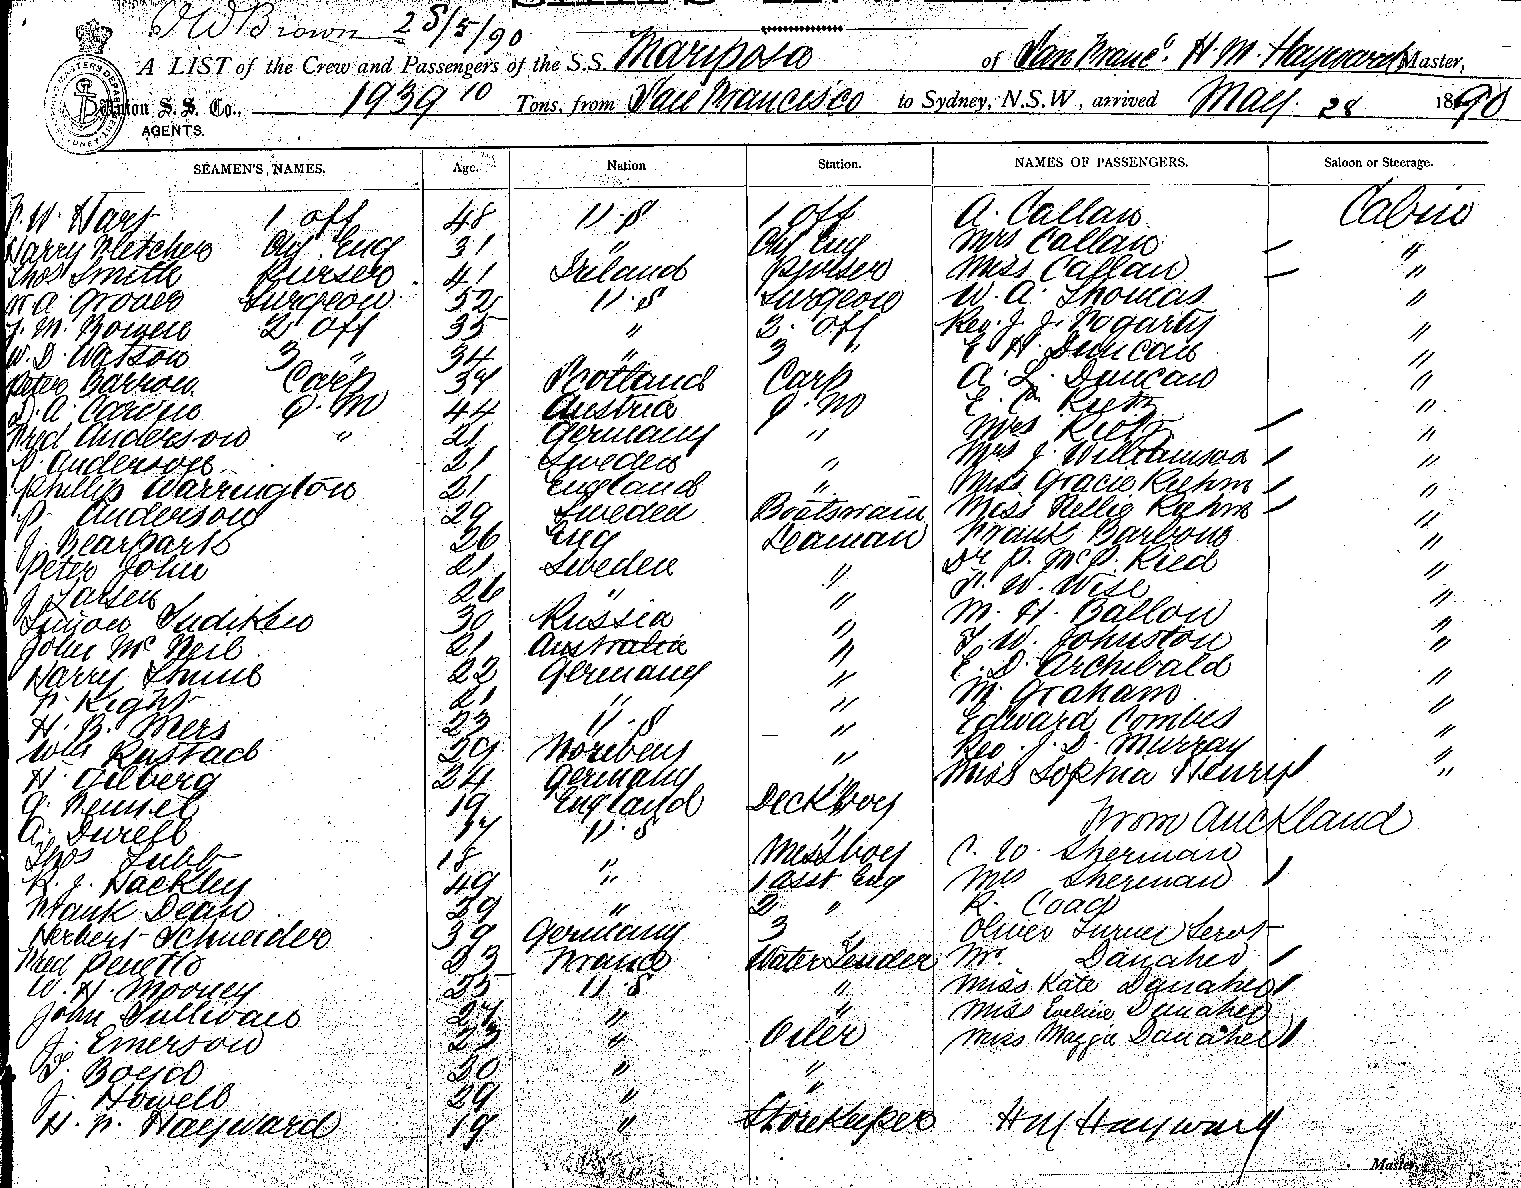 J W Brown 28/5/90
A LIST of the Crew and Passengers of the S.S. Mariposa of San Franc. H. M. Hayward Master,
Union S. S. Co., 1939 10 Tons, from San Francisco to Sydney, N.S.W, arrived May 28 1890
AGENTS.
SEAMEN'S NAMES. Age. Nation Station. NAMES OF PASSENGERS. Saloon or Steerage.
F. W. Hart 1 off 48 U.S 1 off A. Callan Cabin
Harry Fletcher Chf Eng 31 " Chf Eng Mrs Callan "
Thos Smith Purser 41 Ireland Purser Miss Callan "
W A Grover Surgeon 52 U.S Surgeon W. A. Thomas "
J. M. Bowen 2 off 35 " 2. off Rev. J. J. Fogarty "
W. D. Watson 3 " 34 " 3 " E H Duncan "
Peter Barron Carp 37 Scotland Carp A. L. Duncan "
D. A. Carino Q. M 44 Austria Q. M E. C.
Fred Anderson " 21 Germany " Mrs "
P. Anderson 21 Sweden " Mrs J. Williamson "
Phillip Warrington 21 England " Miss Gracie Kiehm "
P. Anderson 29 Sweden Boatswain Miss Nellie "
J. Bearpark 26 Eng Seaman Frank Barbour "
Peter John 21 Sweden " Dr P. McP. Ried "
J. Larsen 26 " " F. W. Wise "
Simon 30 Russia " M. H. Ballou "
John McNeil 21 Australia " F. W. Johnston "
Harry 22 Germany " E. D. Archibald "
F. Kight 21 " " M. Graham "
H. B. Mers 23 U.S " Edward Combes "
Wm Rustad 29 " Rev. J. D. Murray "
H. Gilberg 24 Germany Miss Sophia Henry "
G. 19 England Deckboy From Auckland
A. Durell 17 U.S "
Thos Tubb 18 " Messboy C. W. Sherman
R. J. Hackley 49 " 1 asst Eng Mrs Sherman
Frank Dean 39 " 2 " R. Coad
Herbert Schneider 39 Germany 3 " Oliver Turner Servt
Fred 23 France Water Tender Mr. Danaher
W. H. Mooney 25 U.S " Miss Kate Danaher
John Sullivan 27 " Miss Eveline Danaher
J. Emerson 23 " Oiler Miss Maggie Danaher
D. Boyd 30 " "
J. Howell 29 "
H. F. Hayward 19 " Storekeeper H M Hayward
Master.